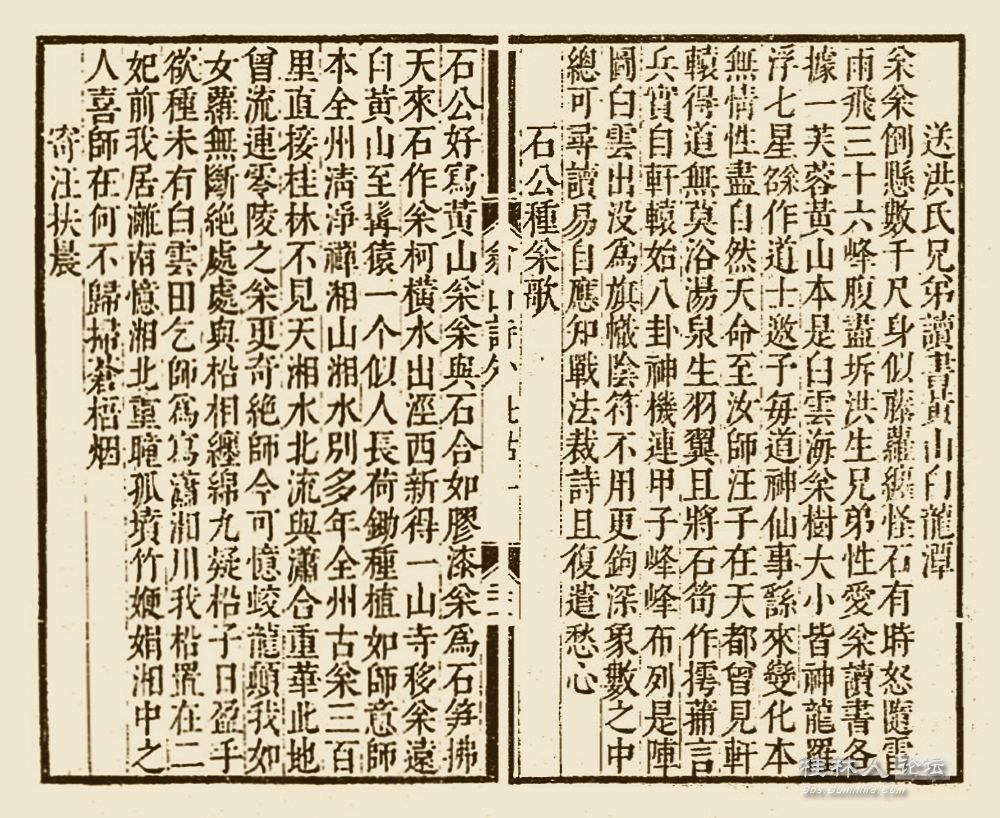 送洪氏兄弟讀書黃山白龍潭
枀枀倒懸數千尺身似藤蘿纏怪石有時怒隨雷
雨飛三十六峰腹盡坼洪生兄弟性愛枀讀書各
據一芙蓉黃山本是白雲海枀樹大小皆神龍羅
浮七星枀作道士邀予每道神仙事繇來變化本
無情性盡自然天命至汝師汪子在天都曾見軒
轅得道無莫浴湯泉生羽翼且將石筍作摴蒱言
兵實自軒轅始八卦神機連甲子峰峰布列是陣
圖白雲出没為旗幟陰符不用更鉤深象數之中
總可尋讀易自應知戰法裁詩且復遣愁心
石公種枀歌
翁山詩外
石公好寫黃山枀枀與石合如膠漆枀為石笋拂
天來石作枀柯橫水出涇西新得一山寺移枀遠
自黃山至髯猿一个似人長荷鋤種植如師意師
本全州淸淨禪湘山湘水別多年全州古枀三百
里直接桂林不見天湘水北流與瀟合重華此地
曾流連零陵之枀更奇絕師今可憶蛟龍顛我如
女蘿無斷絕處處與枱相纏綿九疑枱子日盈手
欲種未有白雲田乞師為寫瀟湘川我枱置在二
妃前我居灕南憶湘北重瞳孤墳竹㛹娟湘中之
人喜師在何不歸掃蒼梧烟
寄汪扶晨
桂林人论坛
bbs.Guilinlife.com